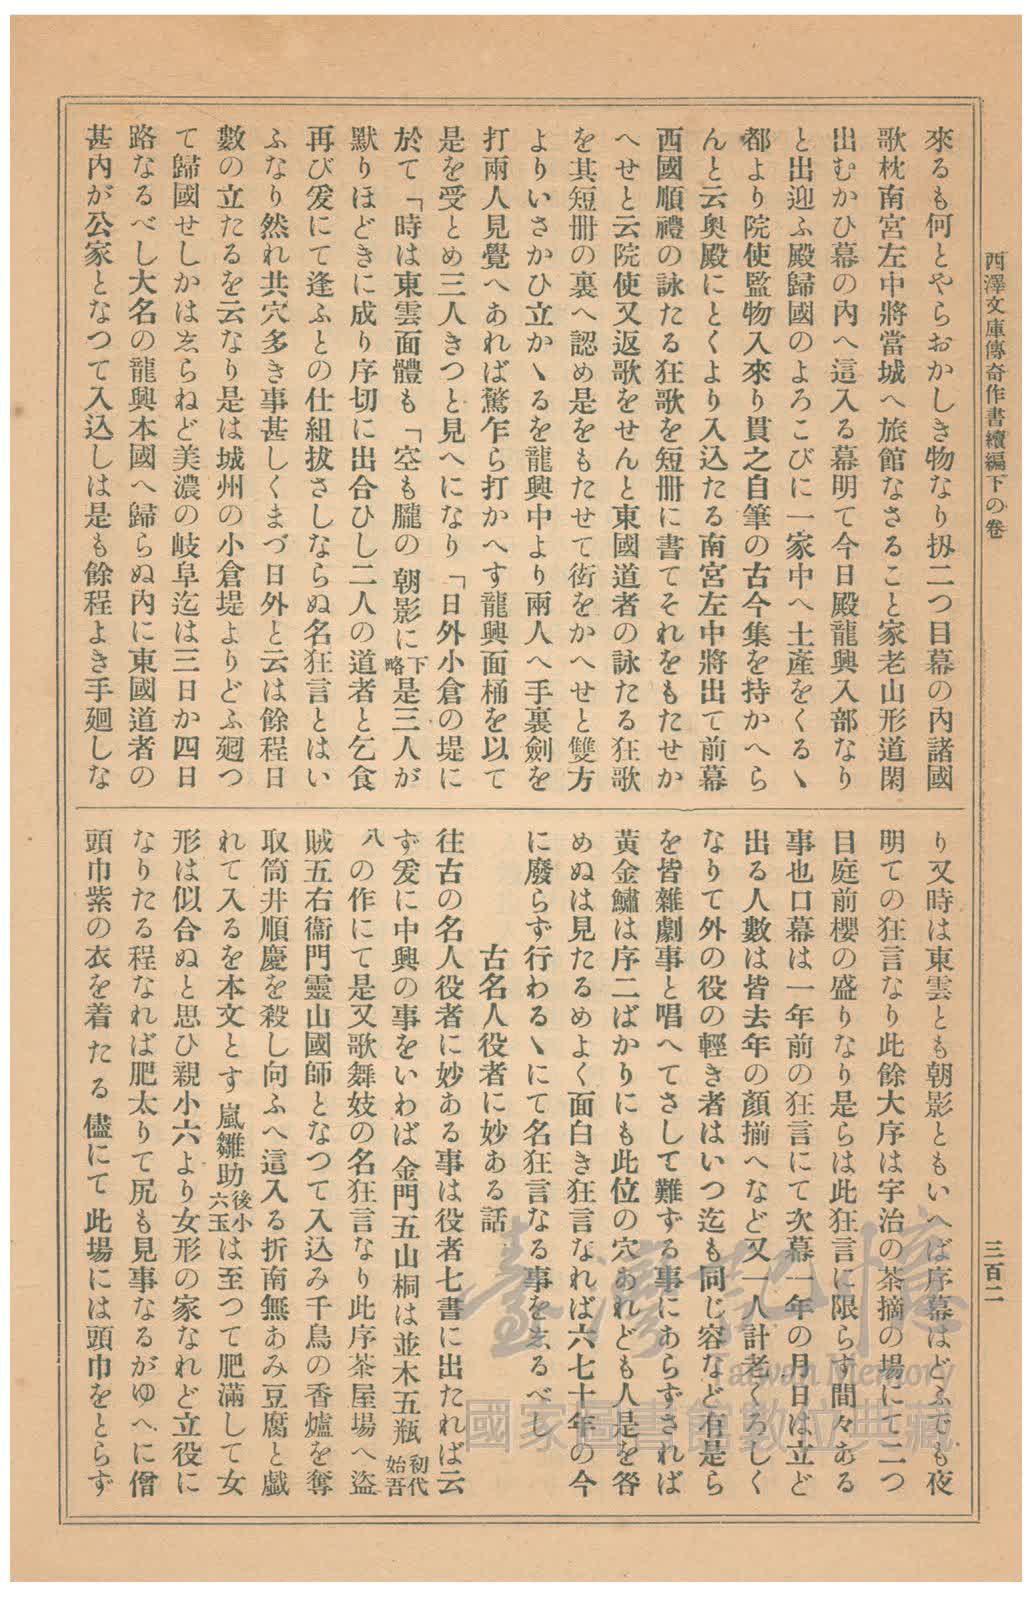 西澤文庫傳奇作書續編下の卷
三百二
來るも何とやらおかしき物なり扨二つ目幕の內諸國
歌枕南宮左中將當城へ旅館なさること家老山形道閑
出むかひ幕の內へ這入る幕明て今日殿龍興入部なり
と出迎ふ殿歸國のよろこびに一家中へ土產をくるゝ
都より院使監物入來り貫之自筆の古今集を持かへら
んと云奧殿にとくより入込たる南宮左中將出て前幕
西國順禮の詠たる狂歌を短冊に書てそれをもたせか
へせと云院使又返歌をせんと東國道者の詠たる狂歌
を其短冊の裏へ認め是をもたせて街をかへせと雙方
よりいさかひ立かゝるを龍興中より兩人へ手裏劍を
打兩人見覺へあれば驚乍ら打かへす龍興面桶を以て
是を受とめ三人きつと見へになり「日外小倉の堤に
於て「時は東雲面體も「空も朧の 朝影に下略是三人が
默りほどきに成り序切に出合ひし二人の道者と乞食
再び爰にて逢ふとの仕組拔さしならぬ名狂言とはい
ふなり然れ共穴多き事甚しくまづ日外と云は餘程日
數の立たるを云なり是は城州の小倉堤よりどふ廻つ
て歸國せしかはゑらねど美濃の岐阜迄は三日か四日
路なるべし大名の龍興本國へ歸らぬ內に東國道者の
甚內が公家となつて入込しは是も餘程よき手廻しな
り又時は東雲とも朝影ともいへば序幕はどふでも夜
明ての狂言なり此餘大序は宇治の茶摘の場にて二つ
目庭前櫻の盛りなり是らは此狂言に限らず間々ある
事也口幕は一年前の狂言にて次幕一年の月日は立ど
出る人數は皆去年の顏揃へなど又一人計老くろしく
なりて外の役の輕き者はいつ迄も同じ容など有是ら
を皆雜劇事と唱へてさして難ずる事にあらずされば
黃金鱐は序二ばかりにも此位の穴あれども人是を咎
めぬは見たるめよく面白き狂言なれば六七十年の今
に廢らず行わるゝにて名狂言なる事をゑるべし
古名人役者に妙ある話
往古の名人役者に妙ある事は役者七書に出たれば云
ず爰に中興の事をいわば 金門五山桐は並木五瓶初代始吾
八の作にて是又歌舞妓の名狂言なり此序茶屋場へ盜
賊五右衞門靈山國師となつて入込み千鳥の香爐を奪
取筒井順慶を殺し向ふへ這入る折南無あみ豆腐と戯
れて入るを本文とす 嵐雛助後小六玉は至つて肥滿して女
形は似合ぬと思ひ親小六より女形の家なれど立役に
なりたる程なれば肥太りて尻も見事なるがゆへに僧
頭巾紫の衣を着たる儘にて此場には頭巾をとらず
臺灣記憶
Taiwan Memory
國家圖書館數位典藏